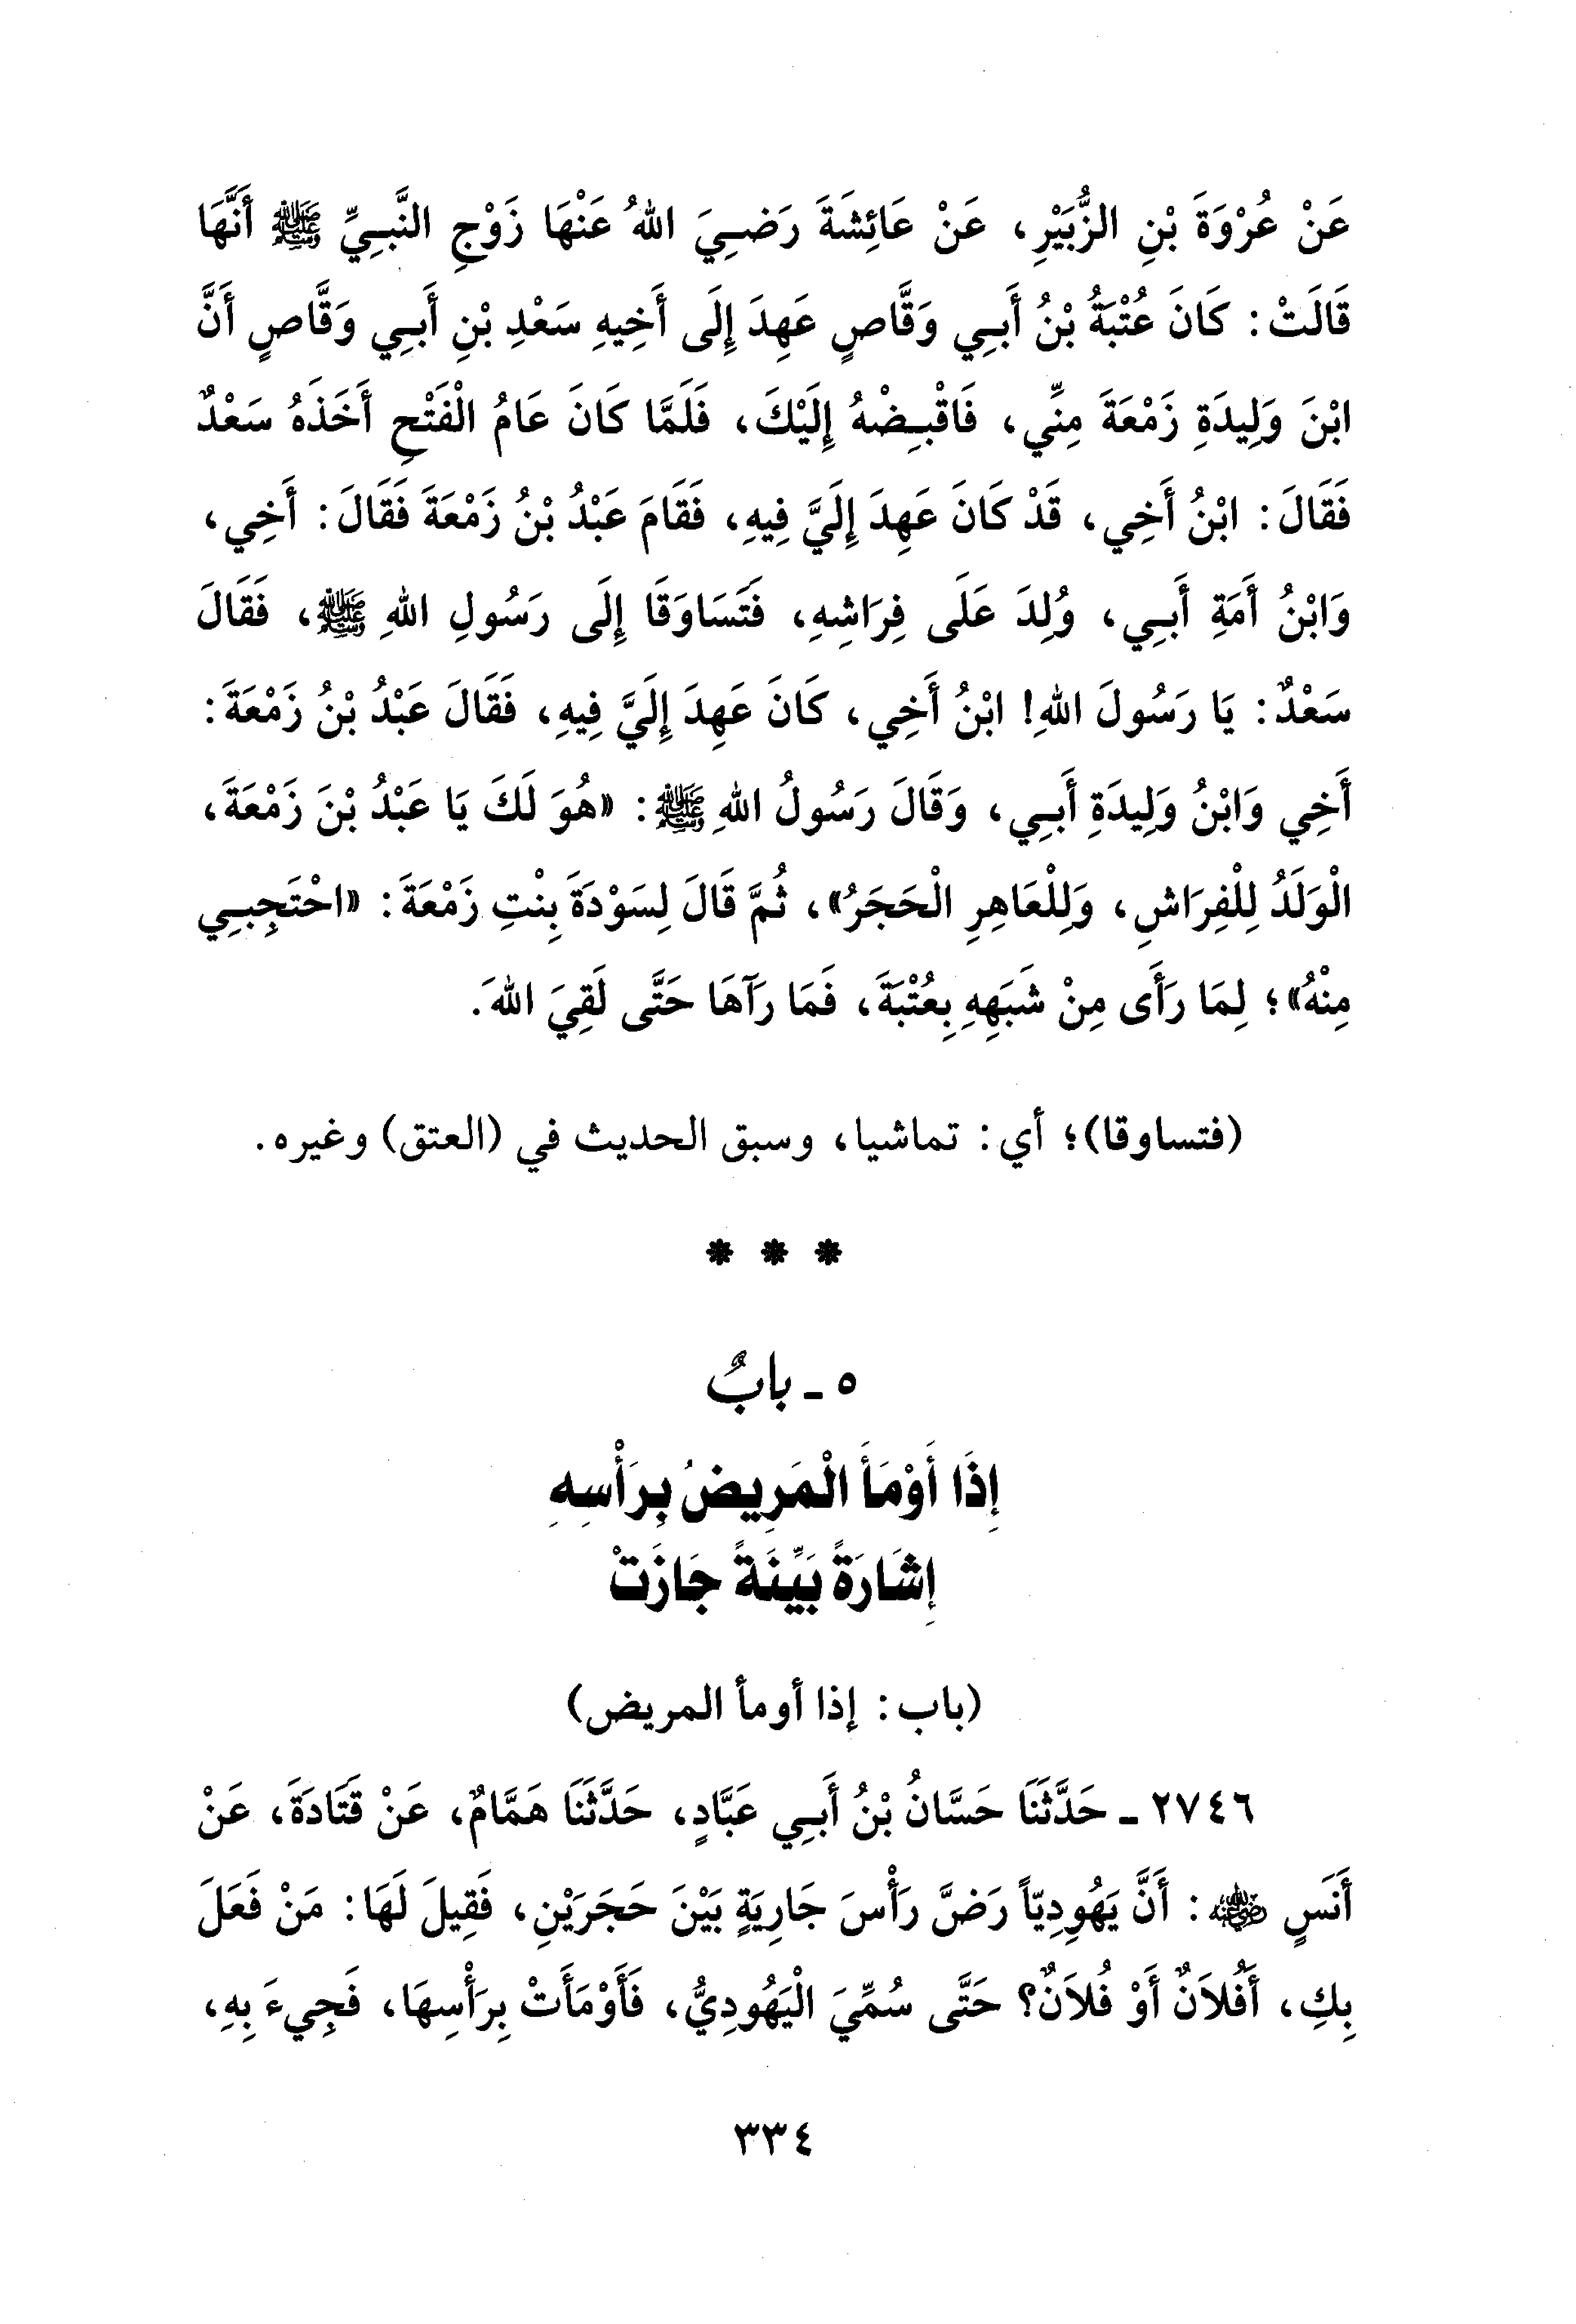 عَنْ عُرْوَةَ بْنِ الزُّبَيْرِ، عَنْ عَائِشَةَ رَضِيَ اللهُ عَنْهَا زَوْجِ النَّبِيِّ ﷺ أَنَّهَا
قَالَتْ: كَانَ عُتْبَةُ بْنُ أَبِي وَقَّاصٍ عَهِدَ إِلَى أَخِيهِ سَعْدِ بْنِ أَبِي وَقَّاصٍ أَنَّ
ابْنَ وَلِيدَةِ زَمْعَةَ مِنِّي، فَاقْبِضْهُ إِلَيْكَ، فَلَمَّا كَانَ عَامُ الْفَتْحِ أَخَذَهُ سَعْدٌ
فَقَالَ: ابْنُ أَخِي، قَدْ كَانَ عَهِدَ إِلَيَّ فِيهِ، فَقَامَ عَبْدُ بْنُ زَمْعَةَ فَقَالَ: أَخِي،
وَابْنُ أَمَةِ أَبِي، وُلِدَ عَلَى فِرَاشِهِ، فَتَسَاوَقَا إِلَى رَسُولِ اللهِ ﷺ، فَقَالَ
سَعْدٌ: يَا رَسُولَ اللهِ! ابْنُ أَخِي، كَانَ عَهِدَ إِلَيَّ فِيهِ، فَقَالَ عَبْدُ بْنُ زَمْعَةَ:
أَخِي وَابْنُ وَلِيدَةِ أَبِي، وَقَالَ رَسُولُ اللهِ ﷺ: «هُوَ لَكَ يَا عَبْدُ بْنَ زَمْعَةَ،
الْوَلَدُ لِلْفِرَاشِ، وَلِلْعَاهِرِ الْحَجَرُ»، ثُمَّ قَالَ لِسَوْدَةَ بِنْتِ زَمْعَةَ: «احْتَجِبِي
مِنْهُ»؛ لِمَا رَأَى مِنْ شَبَهِهِ بِعُتْبَةَ، فَمَا رَآهَا حَتَّى لَقِيَ اللهَ.
(فتساوقا)؛ أي: تماشيا، وسبق الحديث في (العتق) وغيره.
* * *
٥ ـ بابٌ
إِذَا أَوْمَأَ الْمَرِيضُ بِرَأْسِهِ
إِشَارَةً بَيِّنَةً جَازَتْ
(باب: إذا أومأ المريض)
٢٧٤٦ ـ حَدَّثَنَا حَسَّانُ بْنُ أَبِي عَبَّادٍ، حَدَّثَنَا هَمَّامٌ، عَنْ قَتَادَةَ، عَنْ
أَنَسٍ رضي الله عنه: أَنَّ يَهُودِيّاً رَضَّ رَأْسَ جَارِيَةٍ بَيْنَ حَجَرَيْنِ، فَقِيلَ لَهَا: مَنْ فَعَلَ
بِكِ، أَفُلاَنٌ أَوْ فُلاَنٌ؟ حَتَّى سُمِّيَ الْيَهُودِيُّ، فَأَوْمَأَتْ بِرَأْسِهَا، فَجِيءَ بِهِ،
٣٣٤